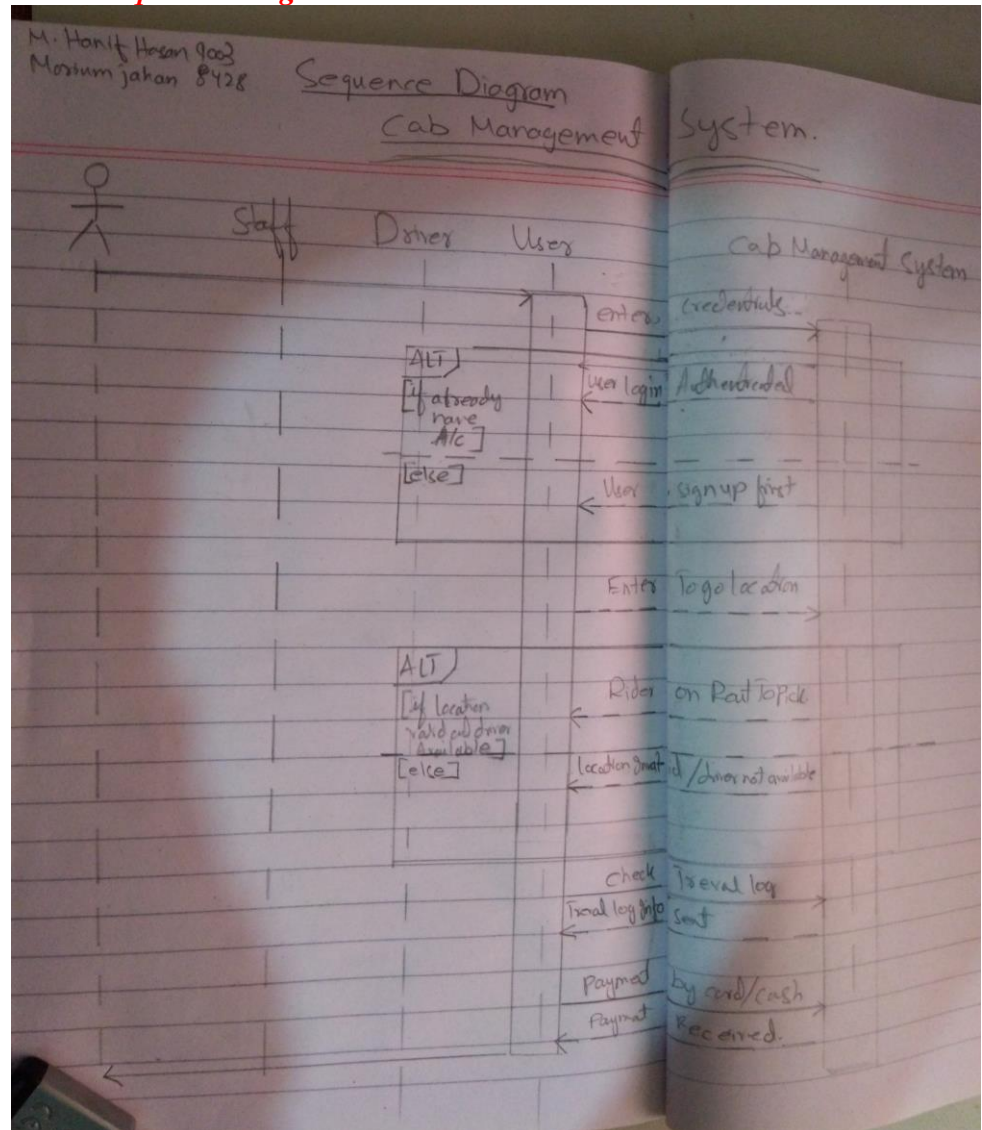 M. Hanif Hasan 9003
Morium jahan 8428
Sequence Diagram
Cab Management System.
Staff Driver User Cab Management System
enter credentials
ALT
User login Authenticated
[if already
have
A/c]
[else]
User signup first
Enter To go location
ALT
[if location
valid and driver
Available]
Rider on Rout To Pick
[else]
location / driver not available
Check Treval log
Traval log Info sent
Payment by card/cash
Paymat Received.